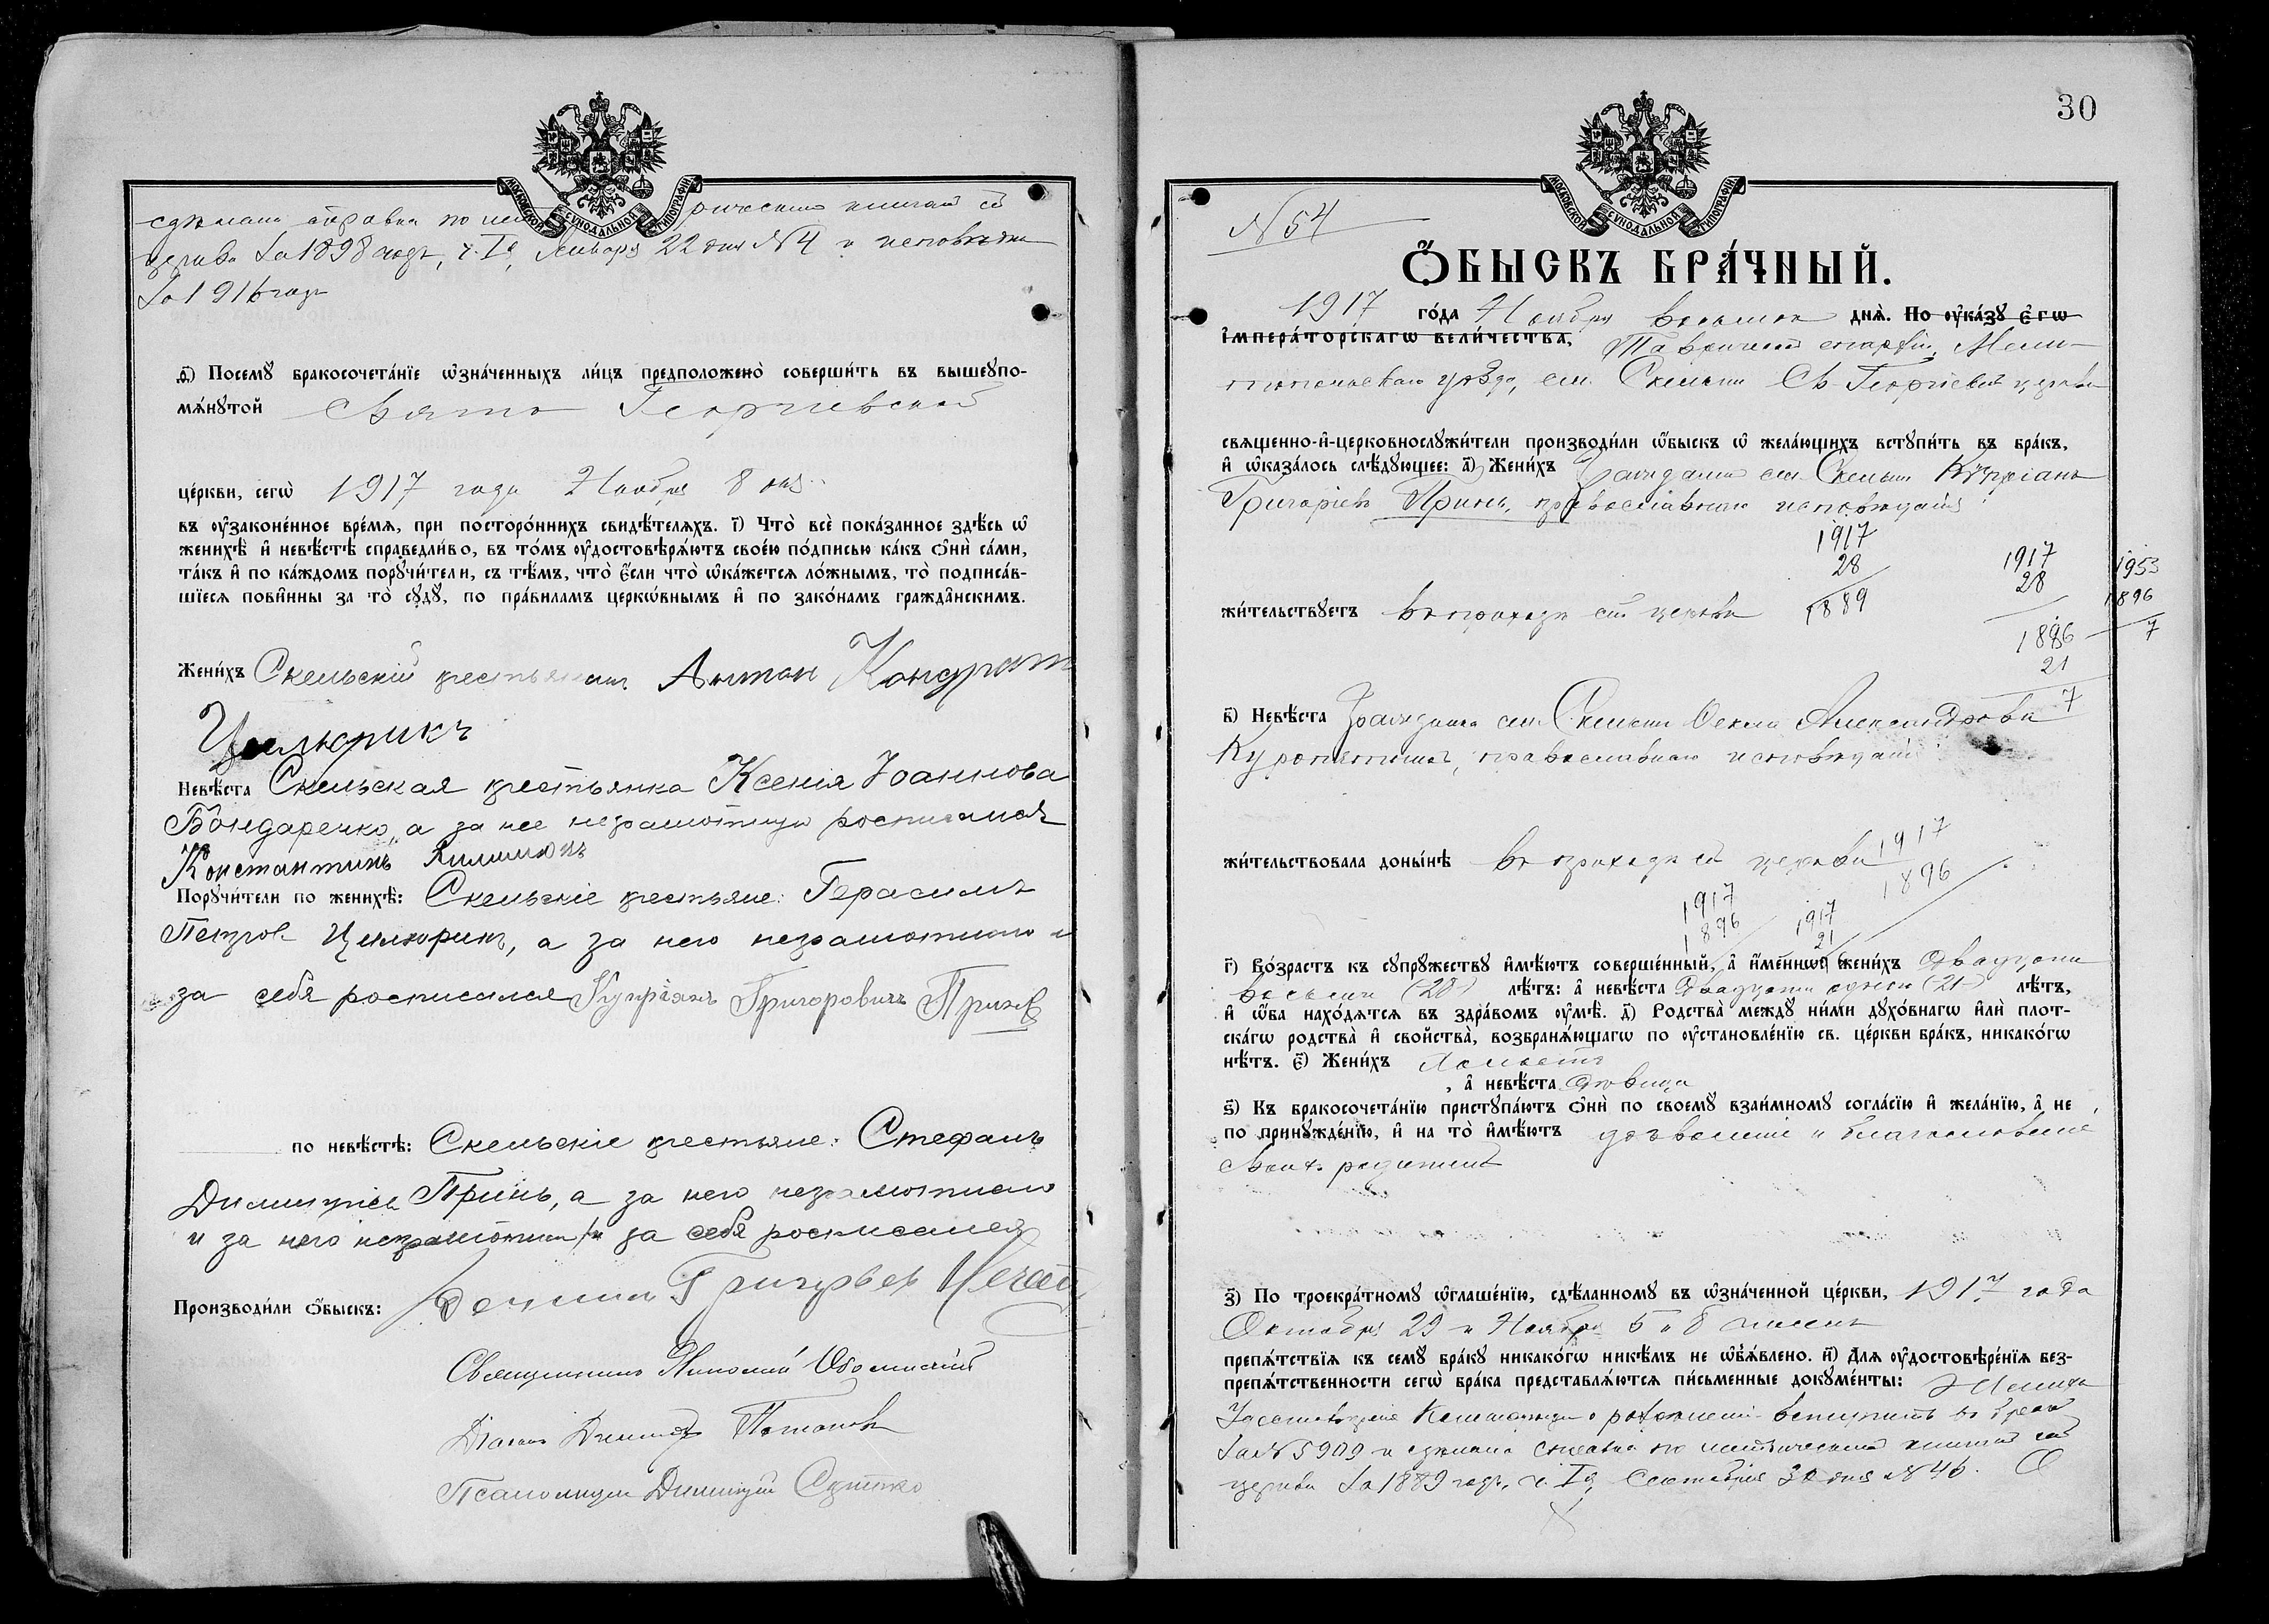 МОСКОВСКОЙ СѴНОДАЛЬНОЙ ТИПОГРАФІИ
сдѣлана справка по рическимъ книгамъ сей
церкви за 1898 годъ, ч. I-я, Января 22 дня № 4 и исповѣдн
за 1916 годъ
д҃) Посемꙋ бракосочета́нїе ѡ҆зна́ченныхъ ли́цъ предположено̀ соверши́ть въ вышеꙋпо-
мѧ́нꙋтой Свято Георгіевской
це́ркви, сегѡ̀ 1917 года Ноября 8 дня
въ ᲂу҆зако́не́нное вре́мѧ, при посторо́ннихъ свидѣ́телѧхъ. і҃) Что̀ всѐ пока́занное здѣ́сь ѡ҆
женихѣ̀ и҆ невѣ́стѣ справедли́во, въ то́мъ ᲂу҆достовѣрѧ́ютъ свое́ю по́дписью ка́къ ѻ҆нѝ са́ми,
та́къ и҆ по ка́ждомъ порꙋчи́тели, съ тѣ́мъ, что̀ є҆́сли что̀ ѡ҆ка́жетсѧ ло́жнымъ, то̀ подписа́в-
шїесѧ пови́нны за то̀ сꙋдꙋ̀, по пра́виламъ церкѡ́внымъ и҆ по зако́намъ гражда́нскимъ.
Жени́хъ Скельскій крестьянинъ Антон Кондрат
Цилюрикъ
Невѣ́ста Скельская крестьянка Ксенія Іоаннова
Бондаренко, а за нее неграмотную росписался
Константинъ
Порꙋчи́тели по женихѣ̀: Скельскіе крестьяне: Герасимъ
Петров Цилюрик, а за него неграмотнаго и
за себя росписался Купріянъ Григоровичъ Принь
по невѣ́стѣ: Скельскіе крестьяне: Стефанъ
Димитріев Принь, а за него неграмотнаго
и за него неграмотнаго и за себя росписался
Григорьев
Производи́ли ѻ҆́быскъ:
Священникъ Николай
Діаконъ Димитрій Потапов
Псаломщик Димитрій
30
МОСКОВСКОЙ СѴНОДАЛЬНОЙ ТИПОГРАФІИ
№ 54
Ѻ҆́БЫСКЪ БРА́ЧНЫЙ.
1917 го́да Ноября восьмого днѧ̀. По ᲂу҆ка́зꙋ є҆гѡ̀
і҆мпера́торскагѡ вели́чества, Таврической епархіи, Мели-
топольскаго уѣзда, сел. Скельки Св. Георгіевской церкви
свѧщенно-и҆-церковнослꙋжи́тели производи́ли ѡ҆́быскъ ѡ҆ жела́ющихъ встꙋпи́ть въ бра́къ,
и҆ ѡ҆каза́лось слѣ́дꙋющее: а҃) Жени́хъ Гражданин сел. Скельки Купріанъ
Григоріевъ Принь, православнаго исповѣданія
1917
28
1889
1917
28
1896
21
7
1953
1896
7
жи́тельствꙋетъ въ приходѣ сей церкви
в҃) Невѣ́ста Гражданка сел. Скельки Фекла Александрова
Куропятник, православнаго исповѣданія
жи́тельствовала доны́нѣ въ приходѣ сей церкви
1917
1896
1917
1896
1917
21
г҃) Во́зрастъ къ сꙋпрꙋ́жествꙋ и҆мѣ́ютъ соверше́нный, а҆ и҆́меннѡ жени́хъ двадцати
восьми (28) лѣ́тъ: а҆ невѣ́ста двадцати одного (21) лѣ́тъ,
и҆ ѡ҆́ба нахо́дѧтсѧ въ здра́вомъ ᲂу҆мѣ̀. д҃) Родства̀ междꙋ̀ ни́ми дꙋхо́внагѡ и҆лѝ плот-
ска́гѡ родства̀ и҆ свойства̀, возбранѧ́ющагѡ по ᲂу҆становле́нїю св. це́ркви бра́къ, никако́гѡ
нѣ́тъ. є҃) Жени́хъ холостъ
, а҆ невѣ́ста дѣвица
ѕ҃) Къ бракосочета́нїю пристꙋпа́ютъ ѻ҆нѝ по своемꙋ̀ взаи́мномꙋ согла́сїю и҆ жела́нїю, а҆ не
по принꙋжде́нїю, и҆ на то̀ и҆мѣ́ютъ дозволеніе и благословеніе
своих родителей
з҃) По троекра́тномꙋ ѡ҆глаше́нїю, сдѣ́ланномꙋ въ ѡ҆зна́ченной це́ркви, 1917 года
Октября 29 и Ноября 5 и 8 чиселъ
препѧ́тствїѧ къ семꙋ̀ бра́кꙋ никако́гѡ никѣ́мъ не ѡ҆б̾ѧ́влено. и҃) Длѧ ᲂу҆достовѣре́нїѧ без-
препѧ́тственности сегѡ̀ бра́ка представлѧ́ютсѧ пи́сьменные докꙋме́нты: Жениха
Удостовѣреніе о разрѣшеніи вступить въ бракъ
за № 5909 и сдѣлана справка по метрическимъ книгамъ сей
церкви за 1889 годъ, ч. I-я, Сентября 30 дня № 46.